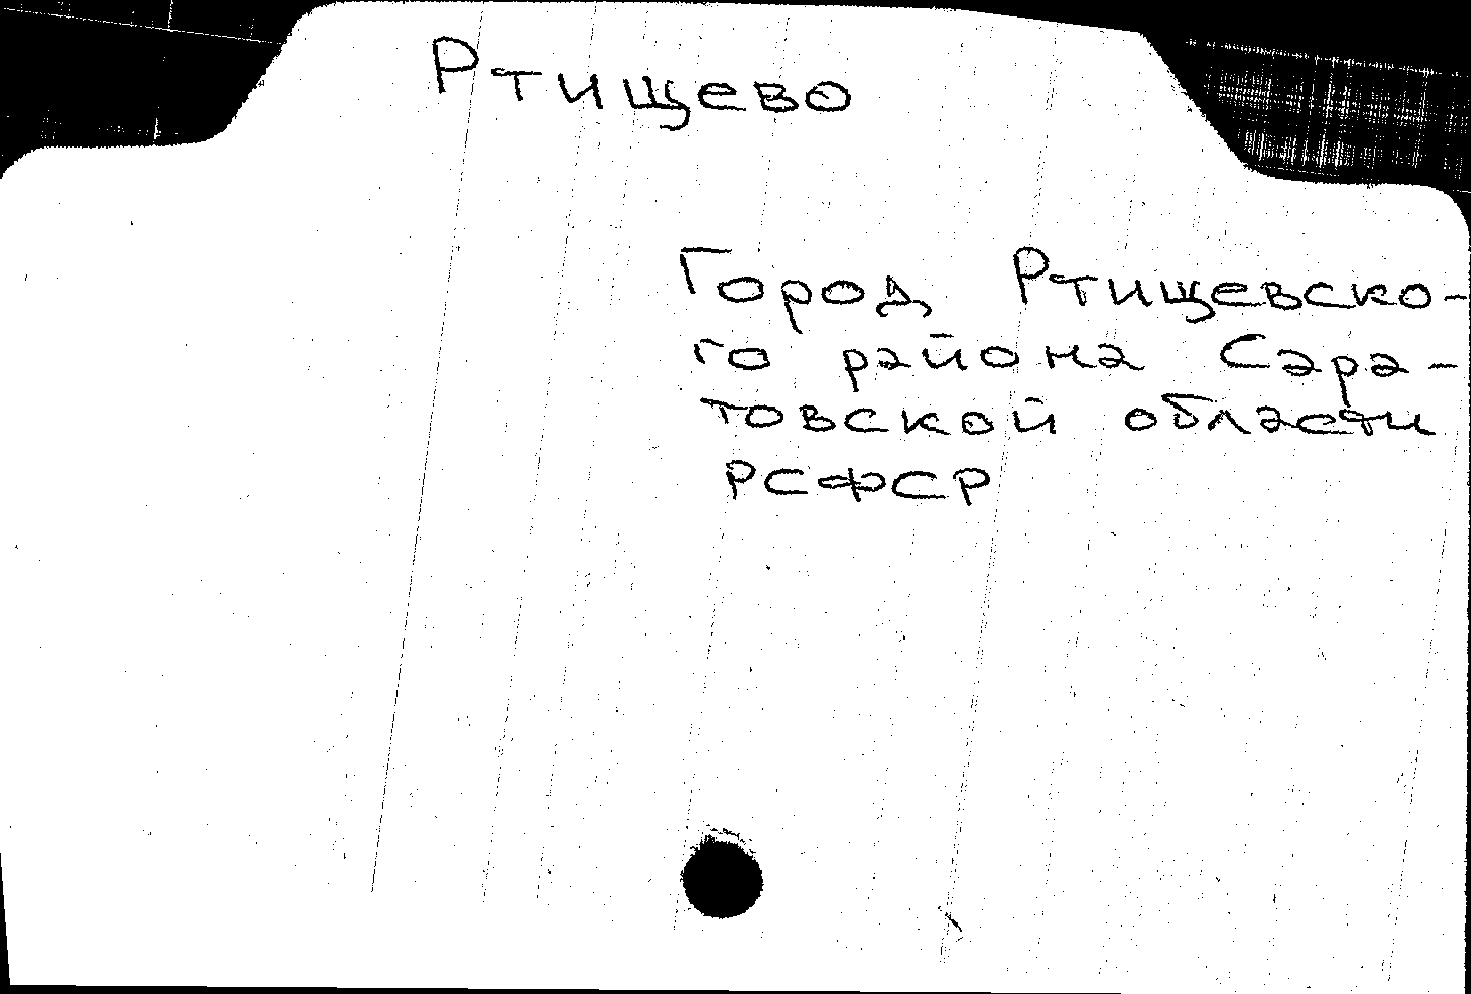 Ртищево
Город Ртищевско-
го района Сара-
товской области
РСФСР